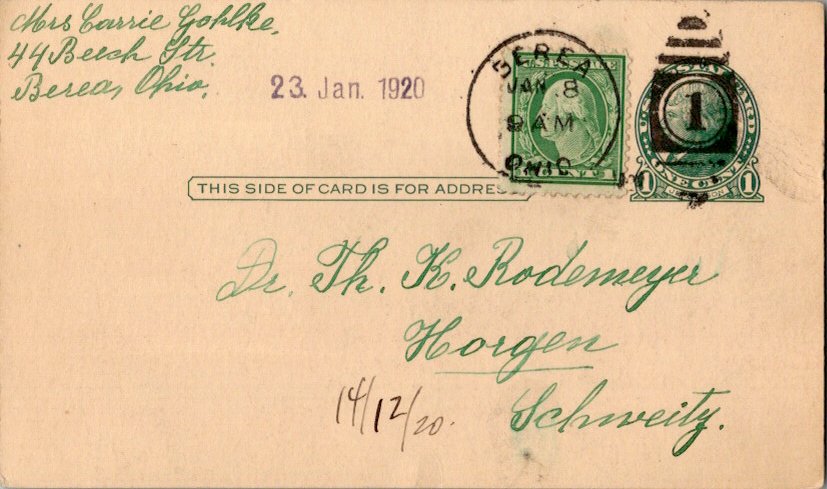 Mrs Carrie Gohlke,
44 Beech Str.
Berea, Ohio.
23. Jan. 1920
BEREA
JAN 8
9 AM
OHIO
1
1 ONE CENT 1
THIS SIDE OF CARD IS FOR ADDRESS
Dr. Th. K. Rodemeyer
Horgen
Schweitz.
14/12/20.